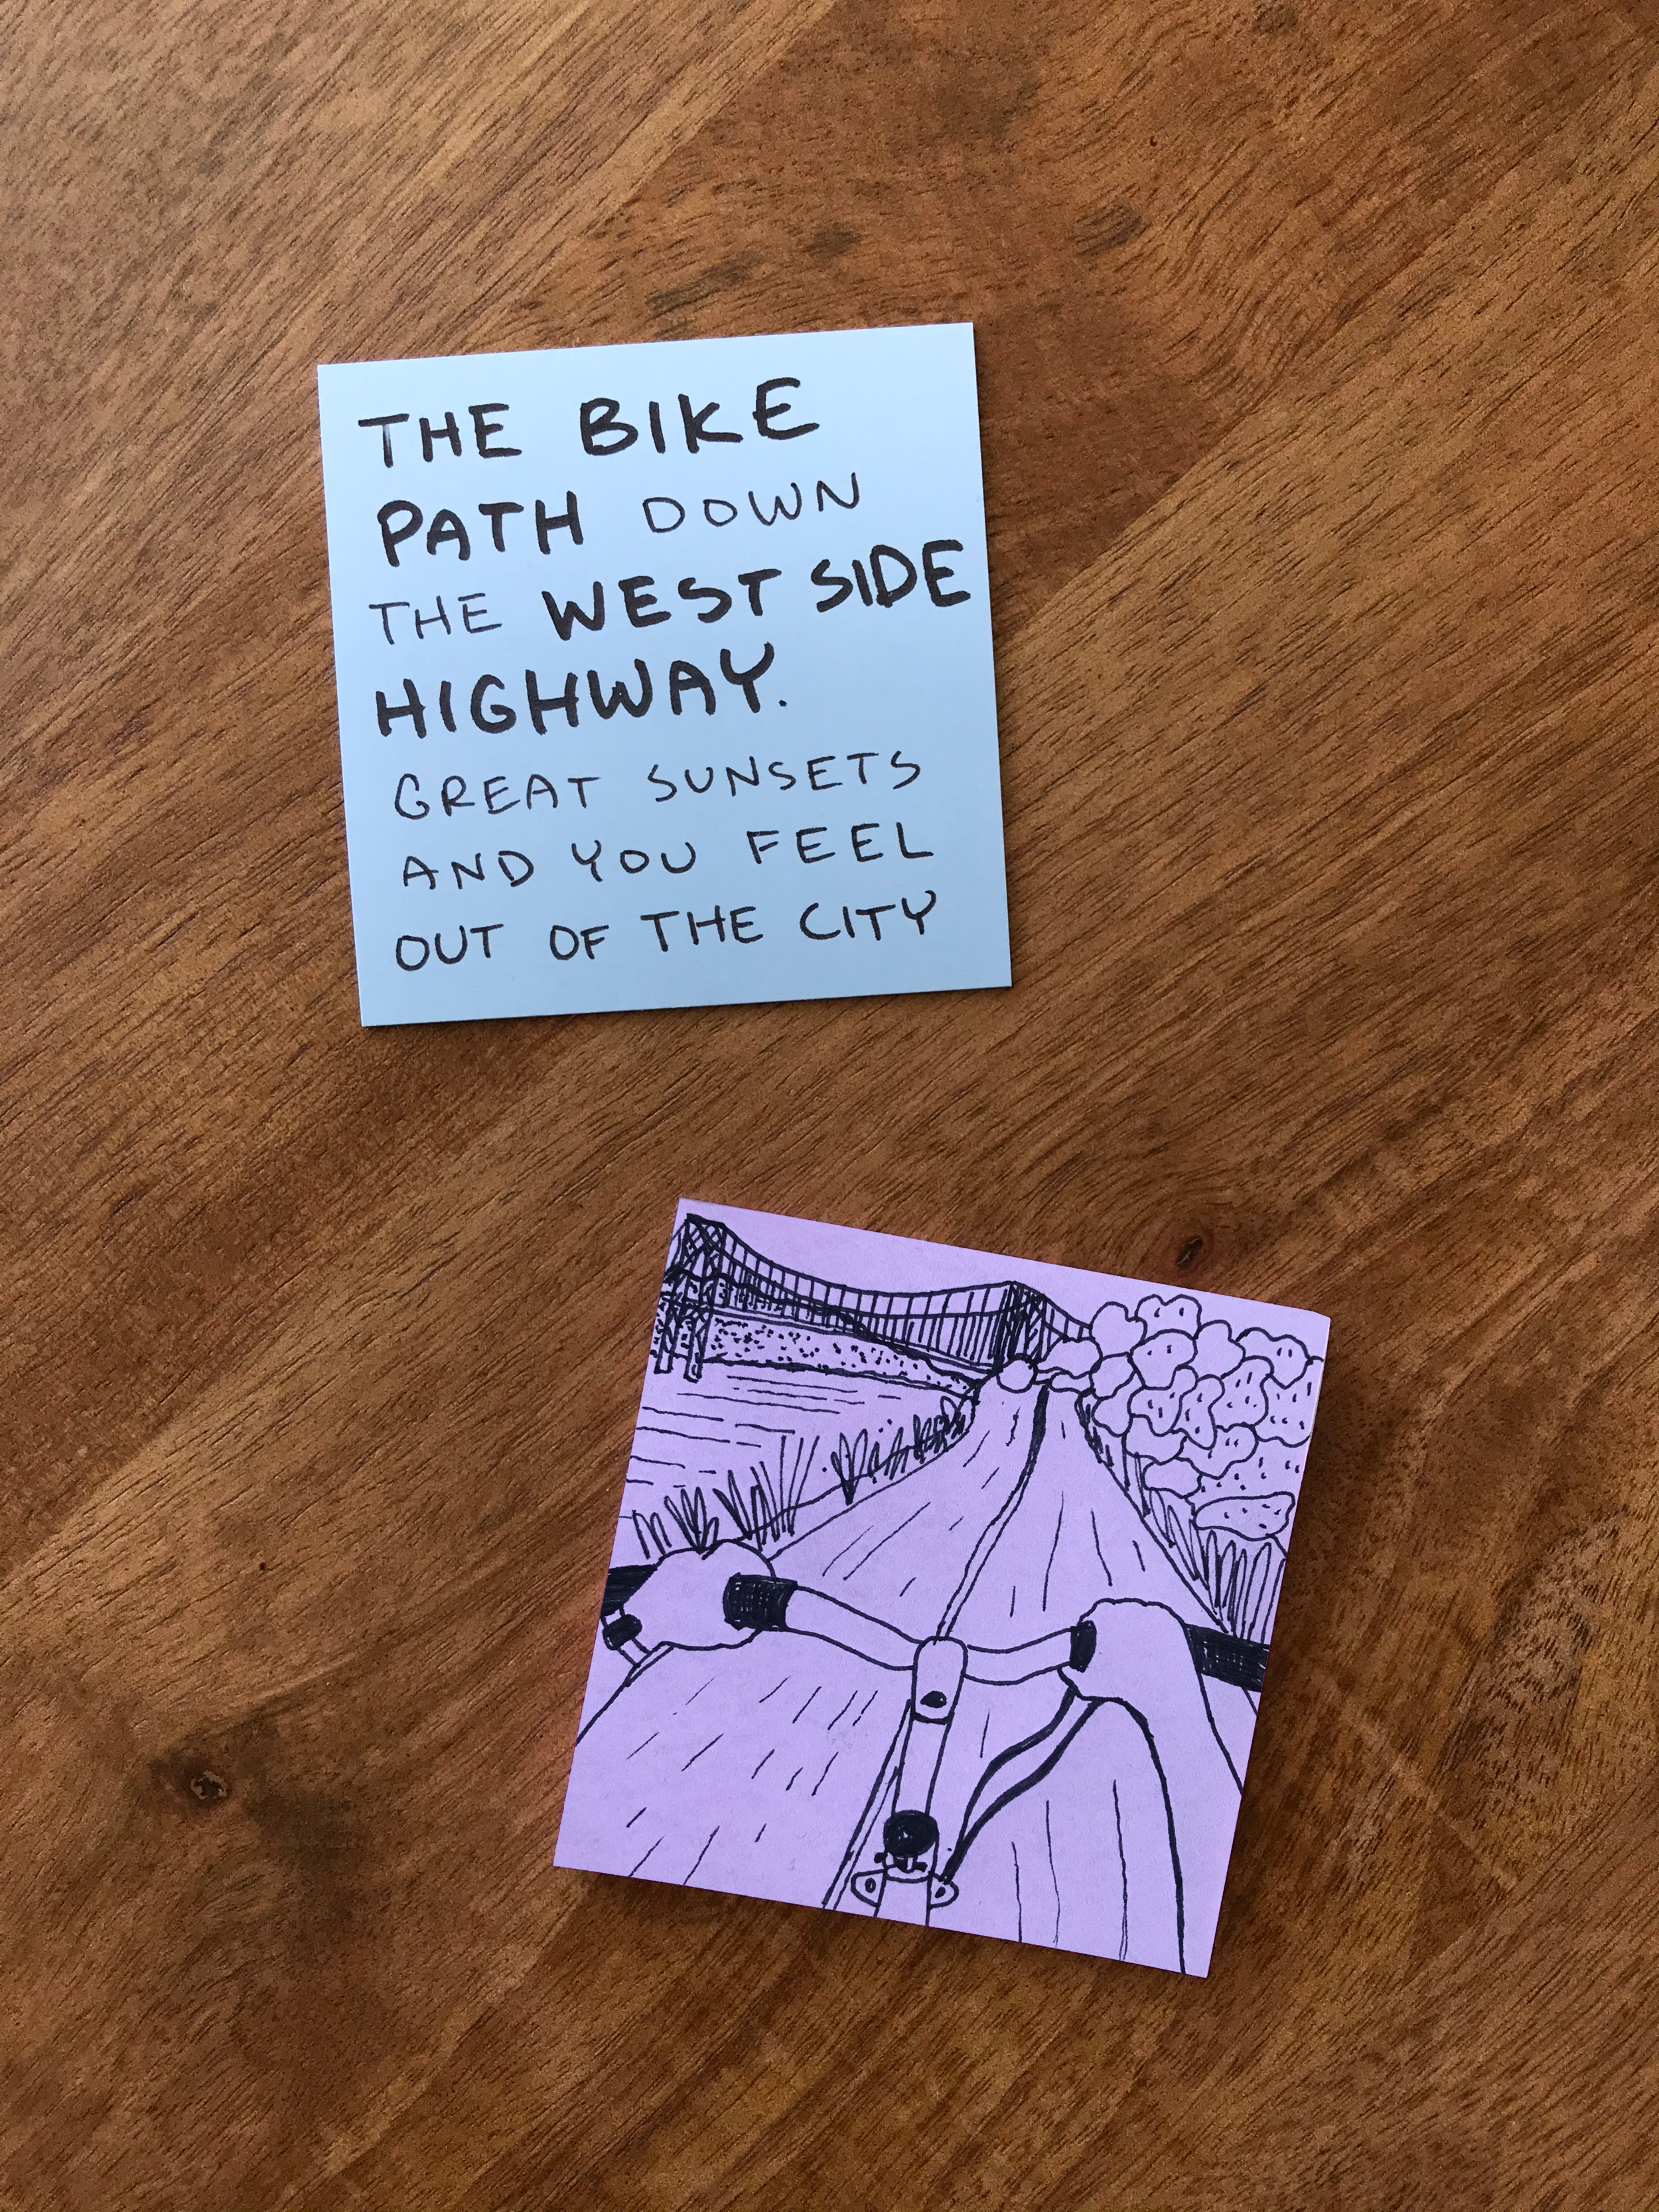 THE BIKE
PATH DOWN
THE WEST SIDE
HIGHWAY.
GREAT SUNSETS
AND YOU FEEL
OUT OF THE CITY